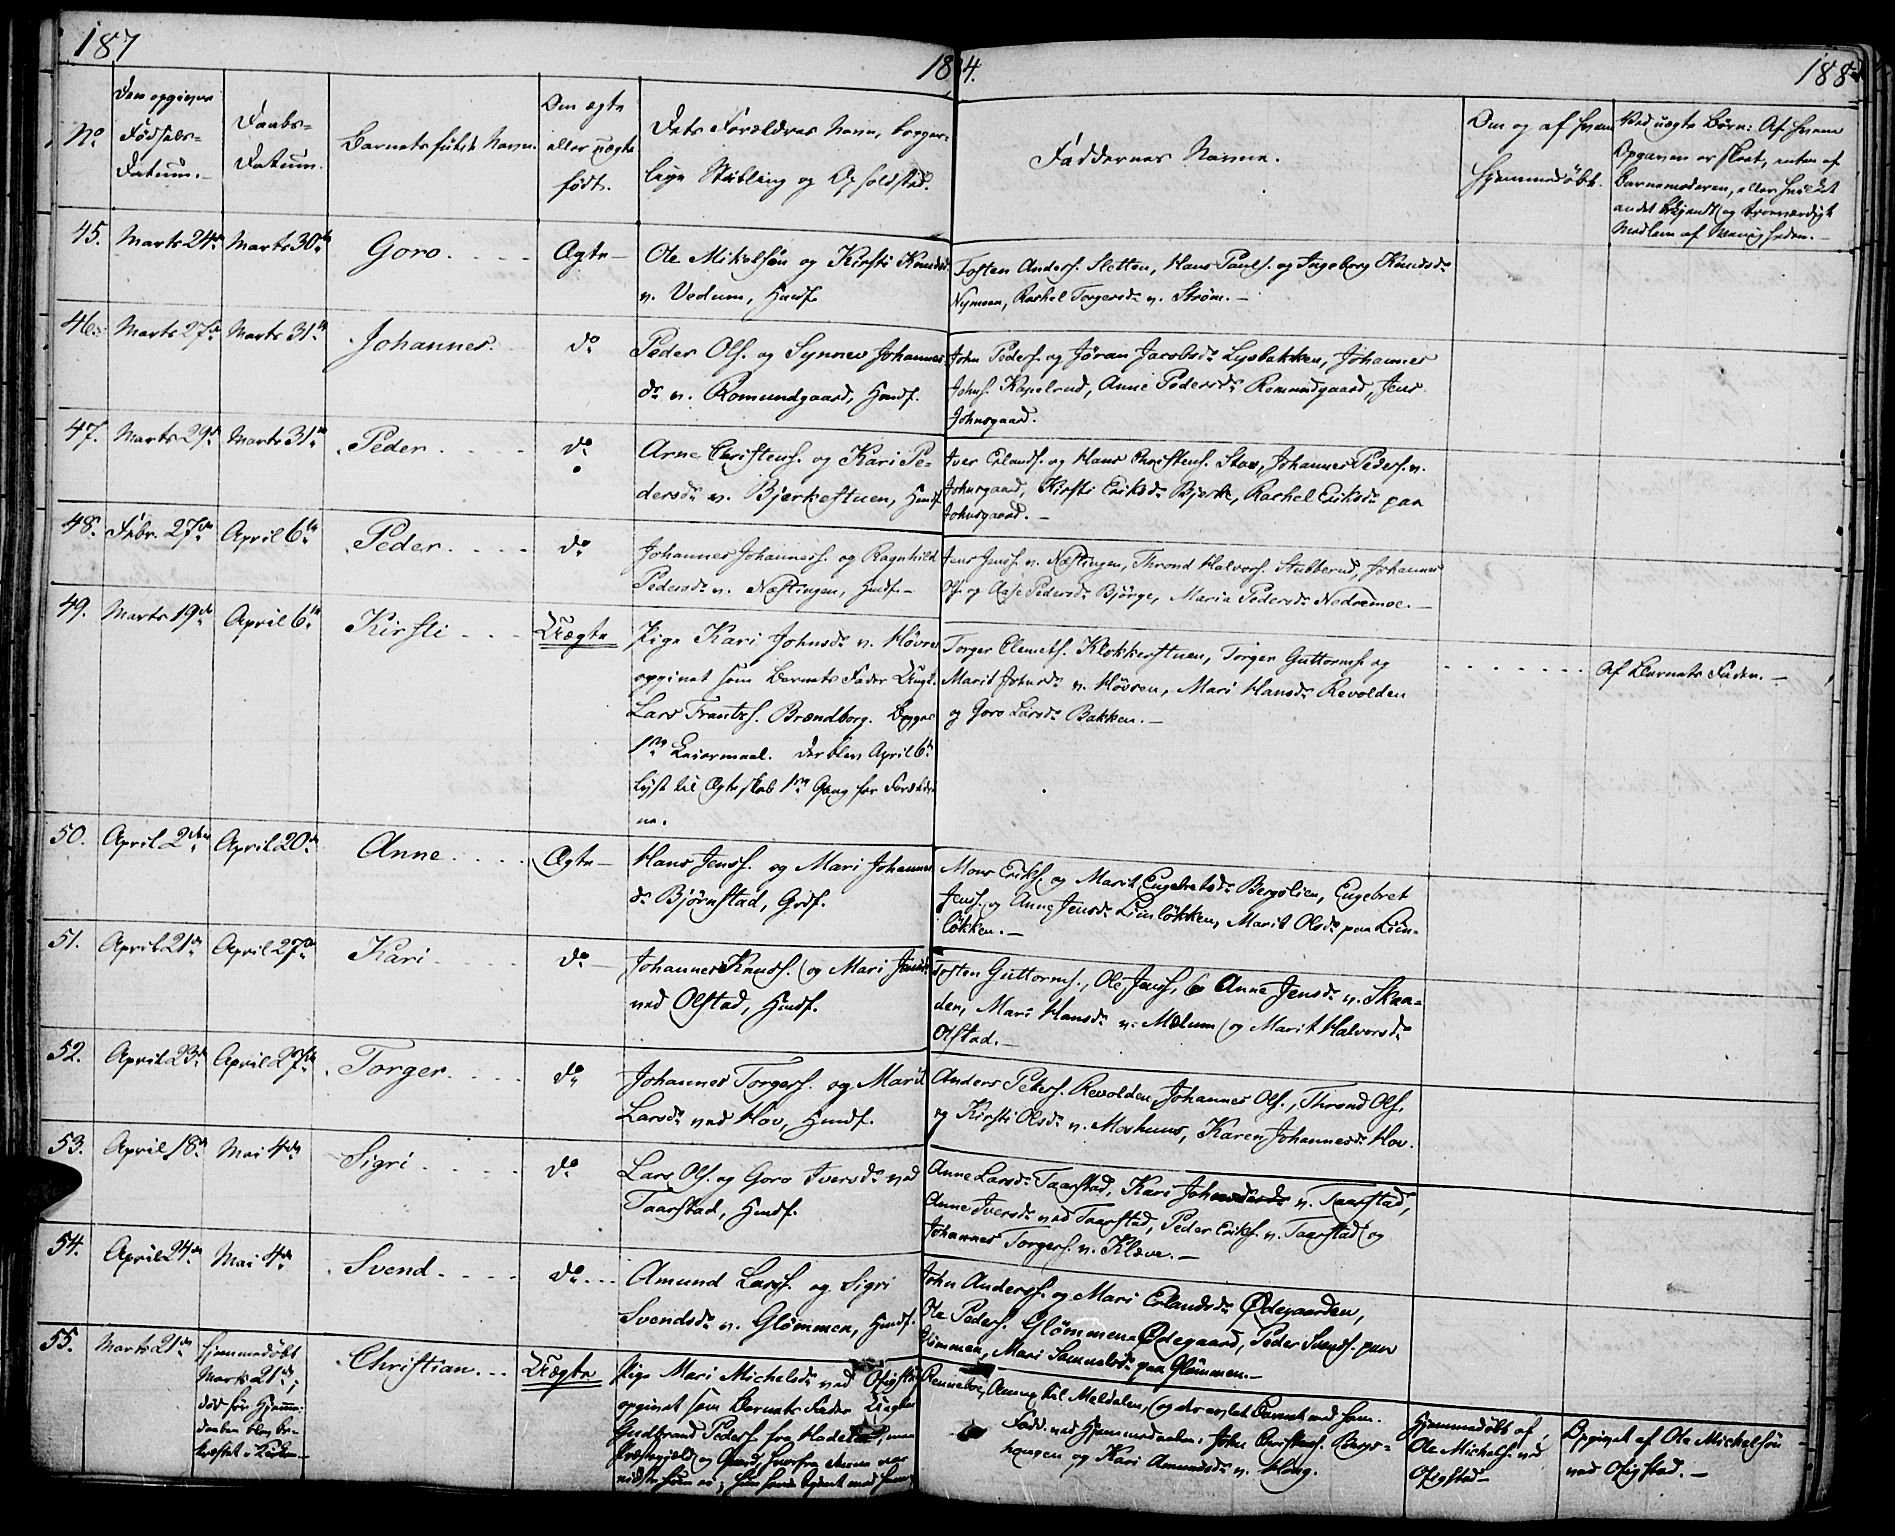 187
18 4.
188
No
Den opgivne Fødsels-Datum.
Daabs-Datum.
Barnets fulde Navn.
Om ægte eller uægte født.
Dets Forældres Navn, borger-
lige Stilling og Opholdsted.
Faddernes Navne.
Om og af hvem hjemmedøbt.
Ved uægte Børn: Af hvem
Opgaven er skeet, enten af
Barnemoderen, eller hvilket
andet bekjendt og troeværdigt
Medlem af Menigheden.
45. Marts 24de Marts 30te Goro. Ægte
Ole Mikelsen og Kirsti Knudsd.
v. Vedum, Huusf.
Tosten Anders. Sletten, Hans Pauls. og Ingeborg Knudsdr
Nymoen, Rachel Torgersdr v. Strøm.
46. Marts 27de Marts 31te Johannes. do
Peder Ols. og Synnev Johannes
dr v. Romundgaard, Huusf.
John Peders. og Jøran Jacobsdr Lysbakken, Johannes
Johns. Kapelrud, Anne Pedersdr Romundgaard, Jens
Johnsgaard.
47. Marts 29de Marts 31te Peder. do
Arne Christens. og Kari Pe-
dersdr v. Bjerkestuen, Huusf.
Iver Erlands. og Hans Christens. Stav, Johannes Peders. v.
Johnsgaard, Kirsti Eriksdr Bjerke, Rachel Eriksdr paa
Johnsgaard.
48. Febr. 27de April 6te Peder. do
Johannes Johanness. og Ragnhild
Pedersdr v. Næstingen, Huusf.
Jens Jens. v. Næstingen, Thrond Halvors. Stubberud, Johannes
Ols. og Aase Pedersdr Bjørge, Maria Pedersdr Nedremoe.
49. Marts 19de April 6te Kirsti Uægte
Pige Kari Johnsdr v. Høvren
opgivet som Barnets Fader Ungk.
Lars Frantzs. Brændborg. Begges
1ste Leiermaal. Der blev April 6te
lyst til Ægteskab 1ste Gang for Forældre
ne.
Torger Clemets. Klokkerstuen, Torger Guttorms. og
Marit Johnsdr v. Høvren, Mari Hansdr Revolden
og Goro Larsdr Bakken.
Af Barnets Fader.
50. April 2den April 20de Anne. Ægte
Hans Jens. og Mari Johannes
dr Bjørnstad, Grdf.
Mons Eriks. og Marit Engebretsdr Bergslien, Engebret
Jens. og Anne Jensdr Liinløkken, Marit Olsdr paa Liin-
løkken.
51. April 21de April 27de Kari do
Johannes Knuds. og Mari Jensdr
ved Olstad, Huusf.
Tosten Guttorms., Ole Jens. og Anne Jensdr v. Skaa-
den, Mari Hansdr v. Mælum og Marit Halvorsdr
Olstad.
52. April 23de April 27de Torger. do
Johannes Torgers. og Marit
Larsdr ved Hov, Huusf.
Anders Peders. Revolden, Johannes Ols., Thrond Ols.
og Kirsti Olsdr v. Moshuus, Karen Johannesdr Hov.
53. April 18de Mai 4de Sigri. do
Lars Ols. og Goro Iversdr ved
Taarstad, Huusf.
Anne Larsdr Taarstad, Kari v. Taarstad,
Anne Iversdr ved Taarstad, Peder Eriks. v. Taarstad og
Johannes Torgers. v. Klæve.
54. April 24de Mai 4de Svend. do
Amund Lars. og Sigri
Svendsdr v. Glømmen, Huusf.
John Anders. og Mari Erlandsdr Ødegaarden,
Ole Peders. Glømmens Ødegaard, Peder Svends. paa
Glømmen, Mari Samuelsdr paa Glømmen.
55. Marts 21de
Hjemmedøbt
Marts 21de;
død før Hjemme-
daaben blev be-
kræftet i Kirken
Christian. Uægte
Pige Mari Michelsdr ved Ofigstad
opgivet som Barnets Fader Ungkar
Gudbrand Peders. fra Hadeland, men
Præstegjeld og Gaard, hvorfra denne var
Rennebo, Annex til Meldalen, og der avlet Barnet med ham.
Fadd. ved Hjemmedaaben: John Christens. Berg-
haugen og Kari Amundsdr v. Haug.
Hjemmedøbt af
Ole Michels. ved
Ofigstad
Opgivet af Ole Michelsen
ved Ofigstad.